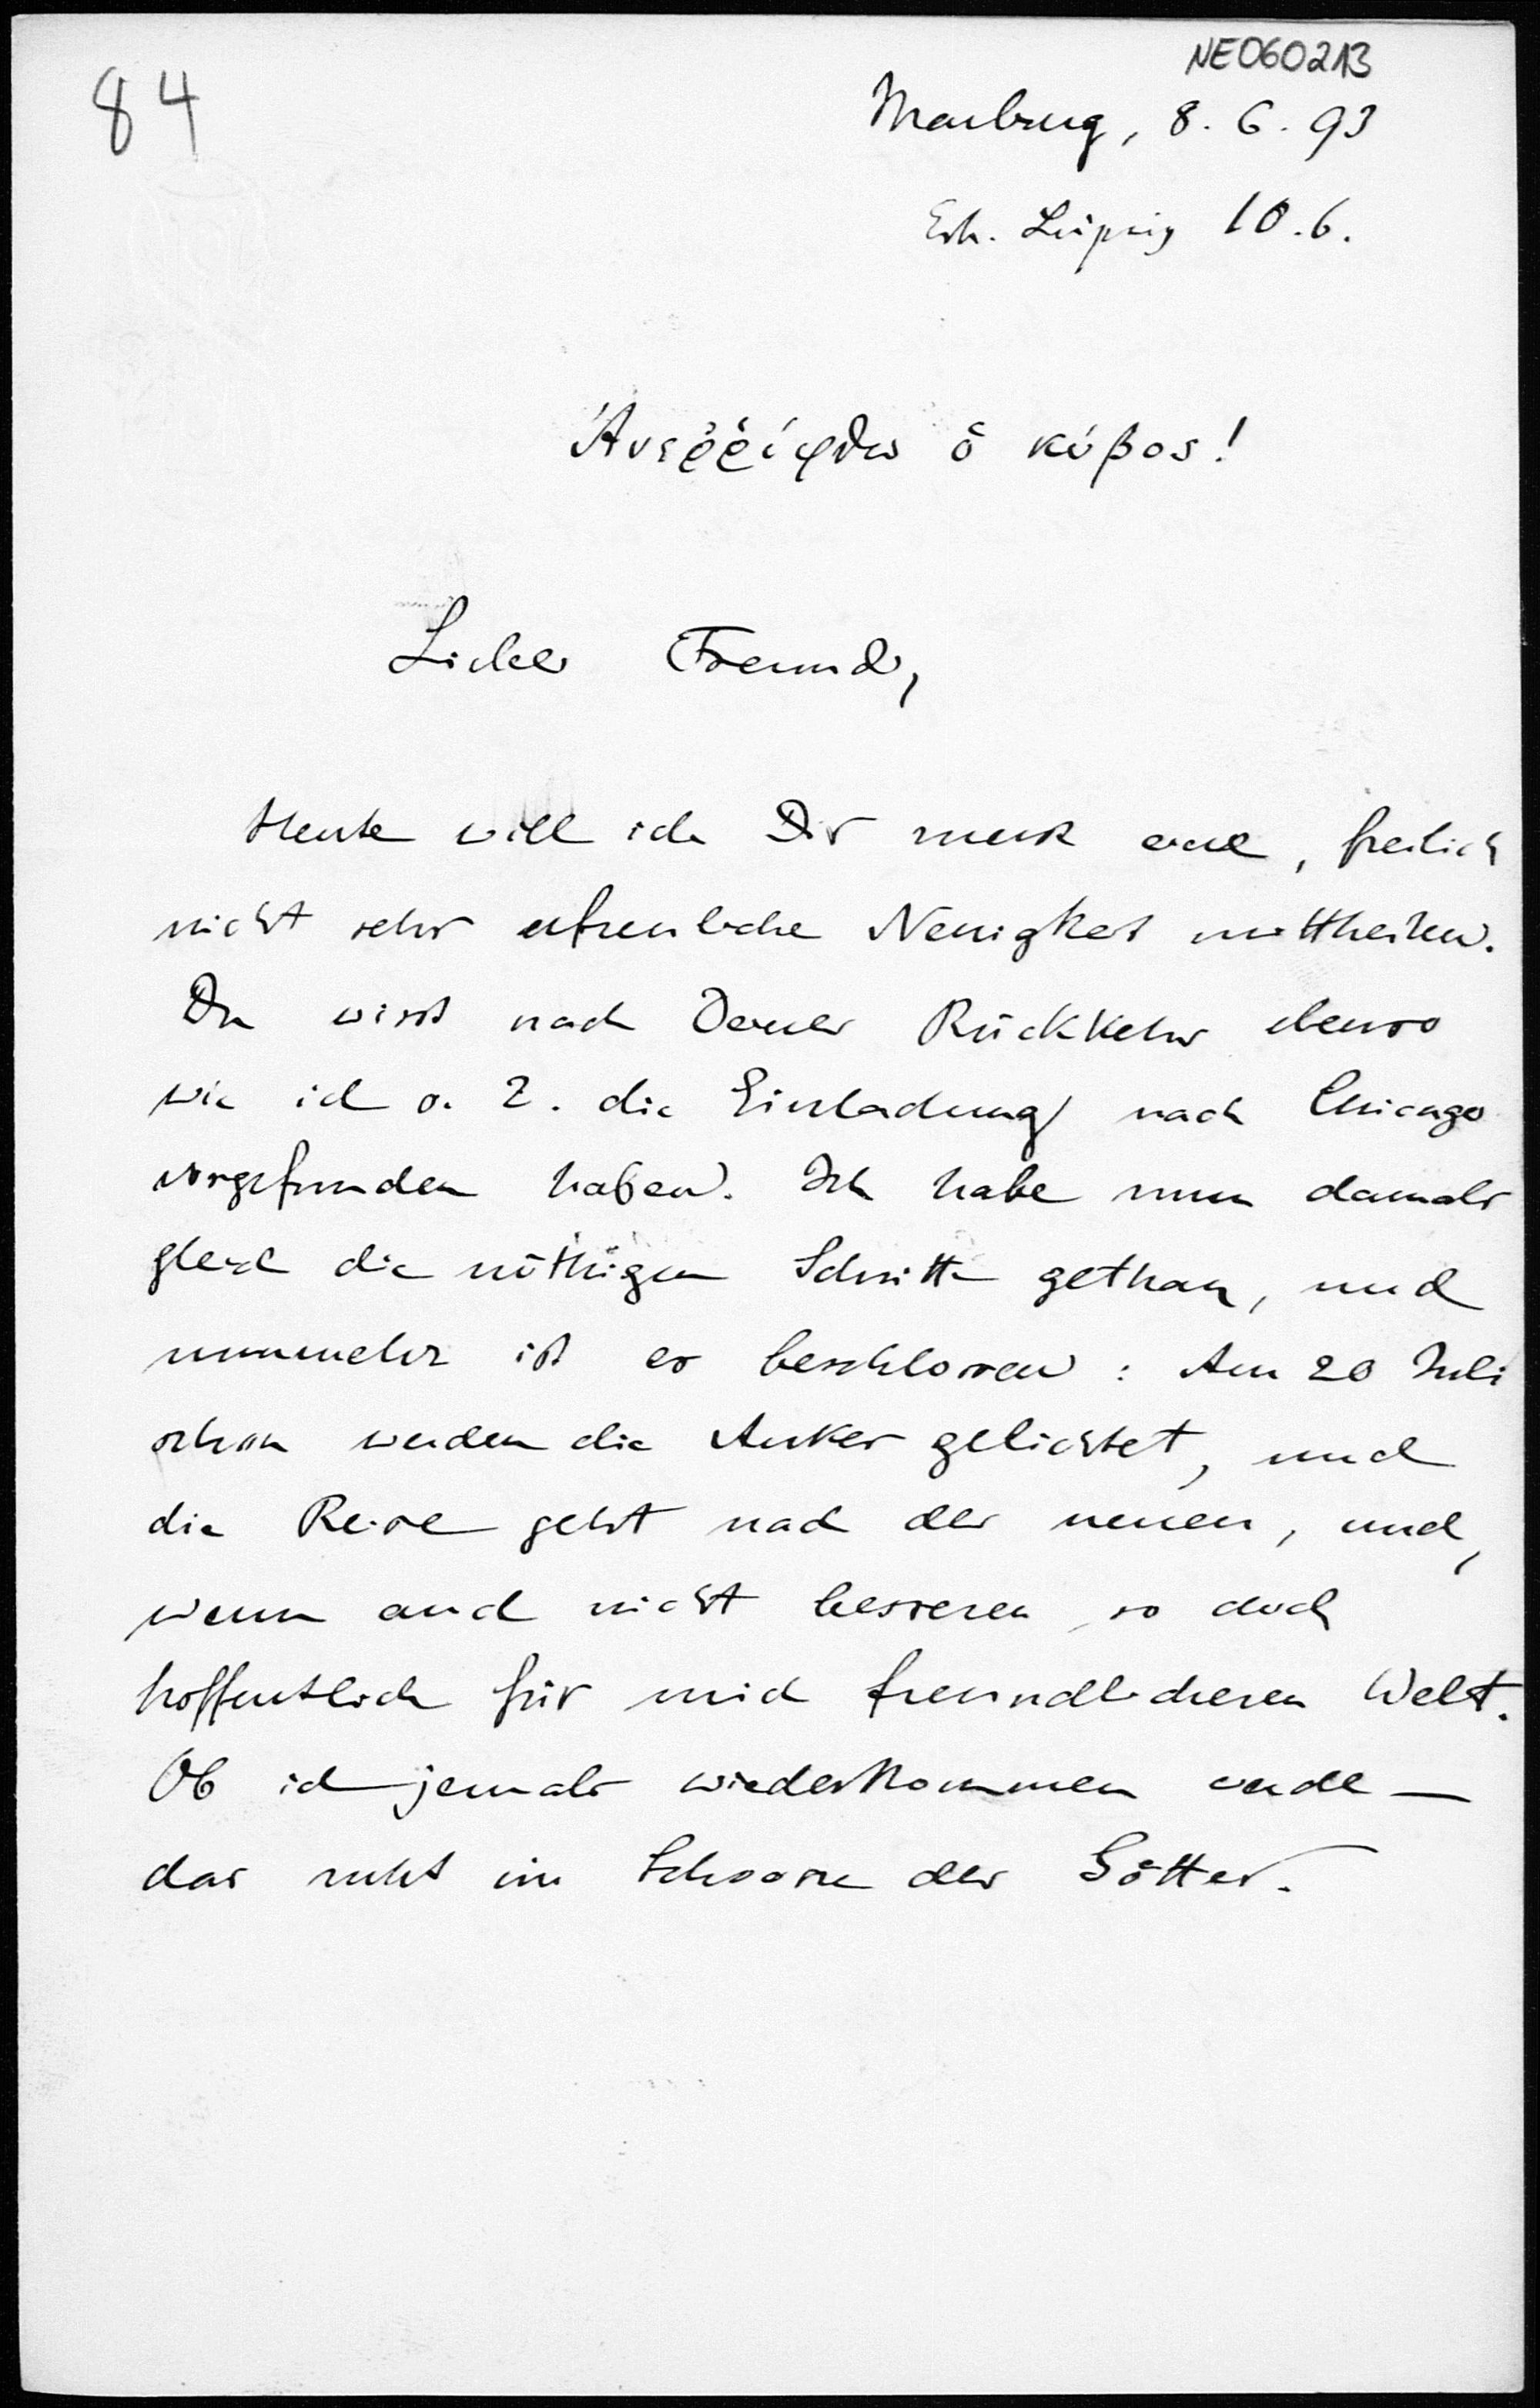 NE060213
84
Marburg, 8. 6. 93
Erh. Leipzig 10.6.
Ἀνεῤῥίφθω ὁ κύβος!
Lieber Freund,
Heute will ich Dir eine, freilich
nicht sehr erfreuliche Neuigkeit mittheilen.
Du wirst nach Deiner Rückkehr ebenso
wie ich s. Z. die Einladung nach Chicago
vorgefunden haben. Ich habe nun damals
gleich die nöthigen Schritte gethan, und
nunmehr ist es beschlossen: Am 20 Juli
schon werden die Anker gelichtet, und
die Reise geht nach der neuen, und,
wenn auch nicht besseren, so doch
hoffentlich für mich freundlicheren Welt.
Ob ich jemals wiederkommen werde —
das ruht im Schoosse der Götter.